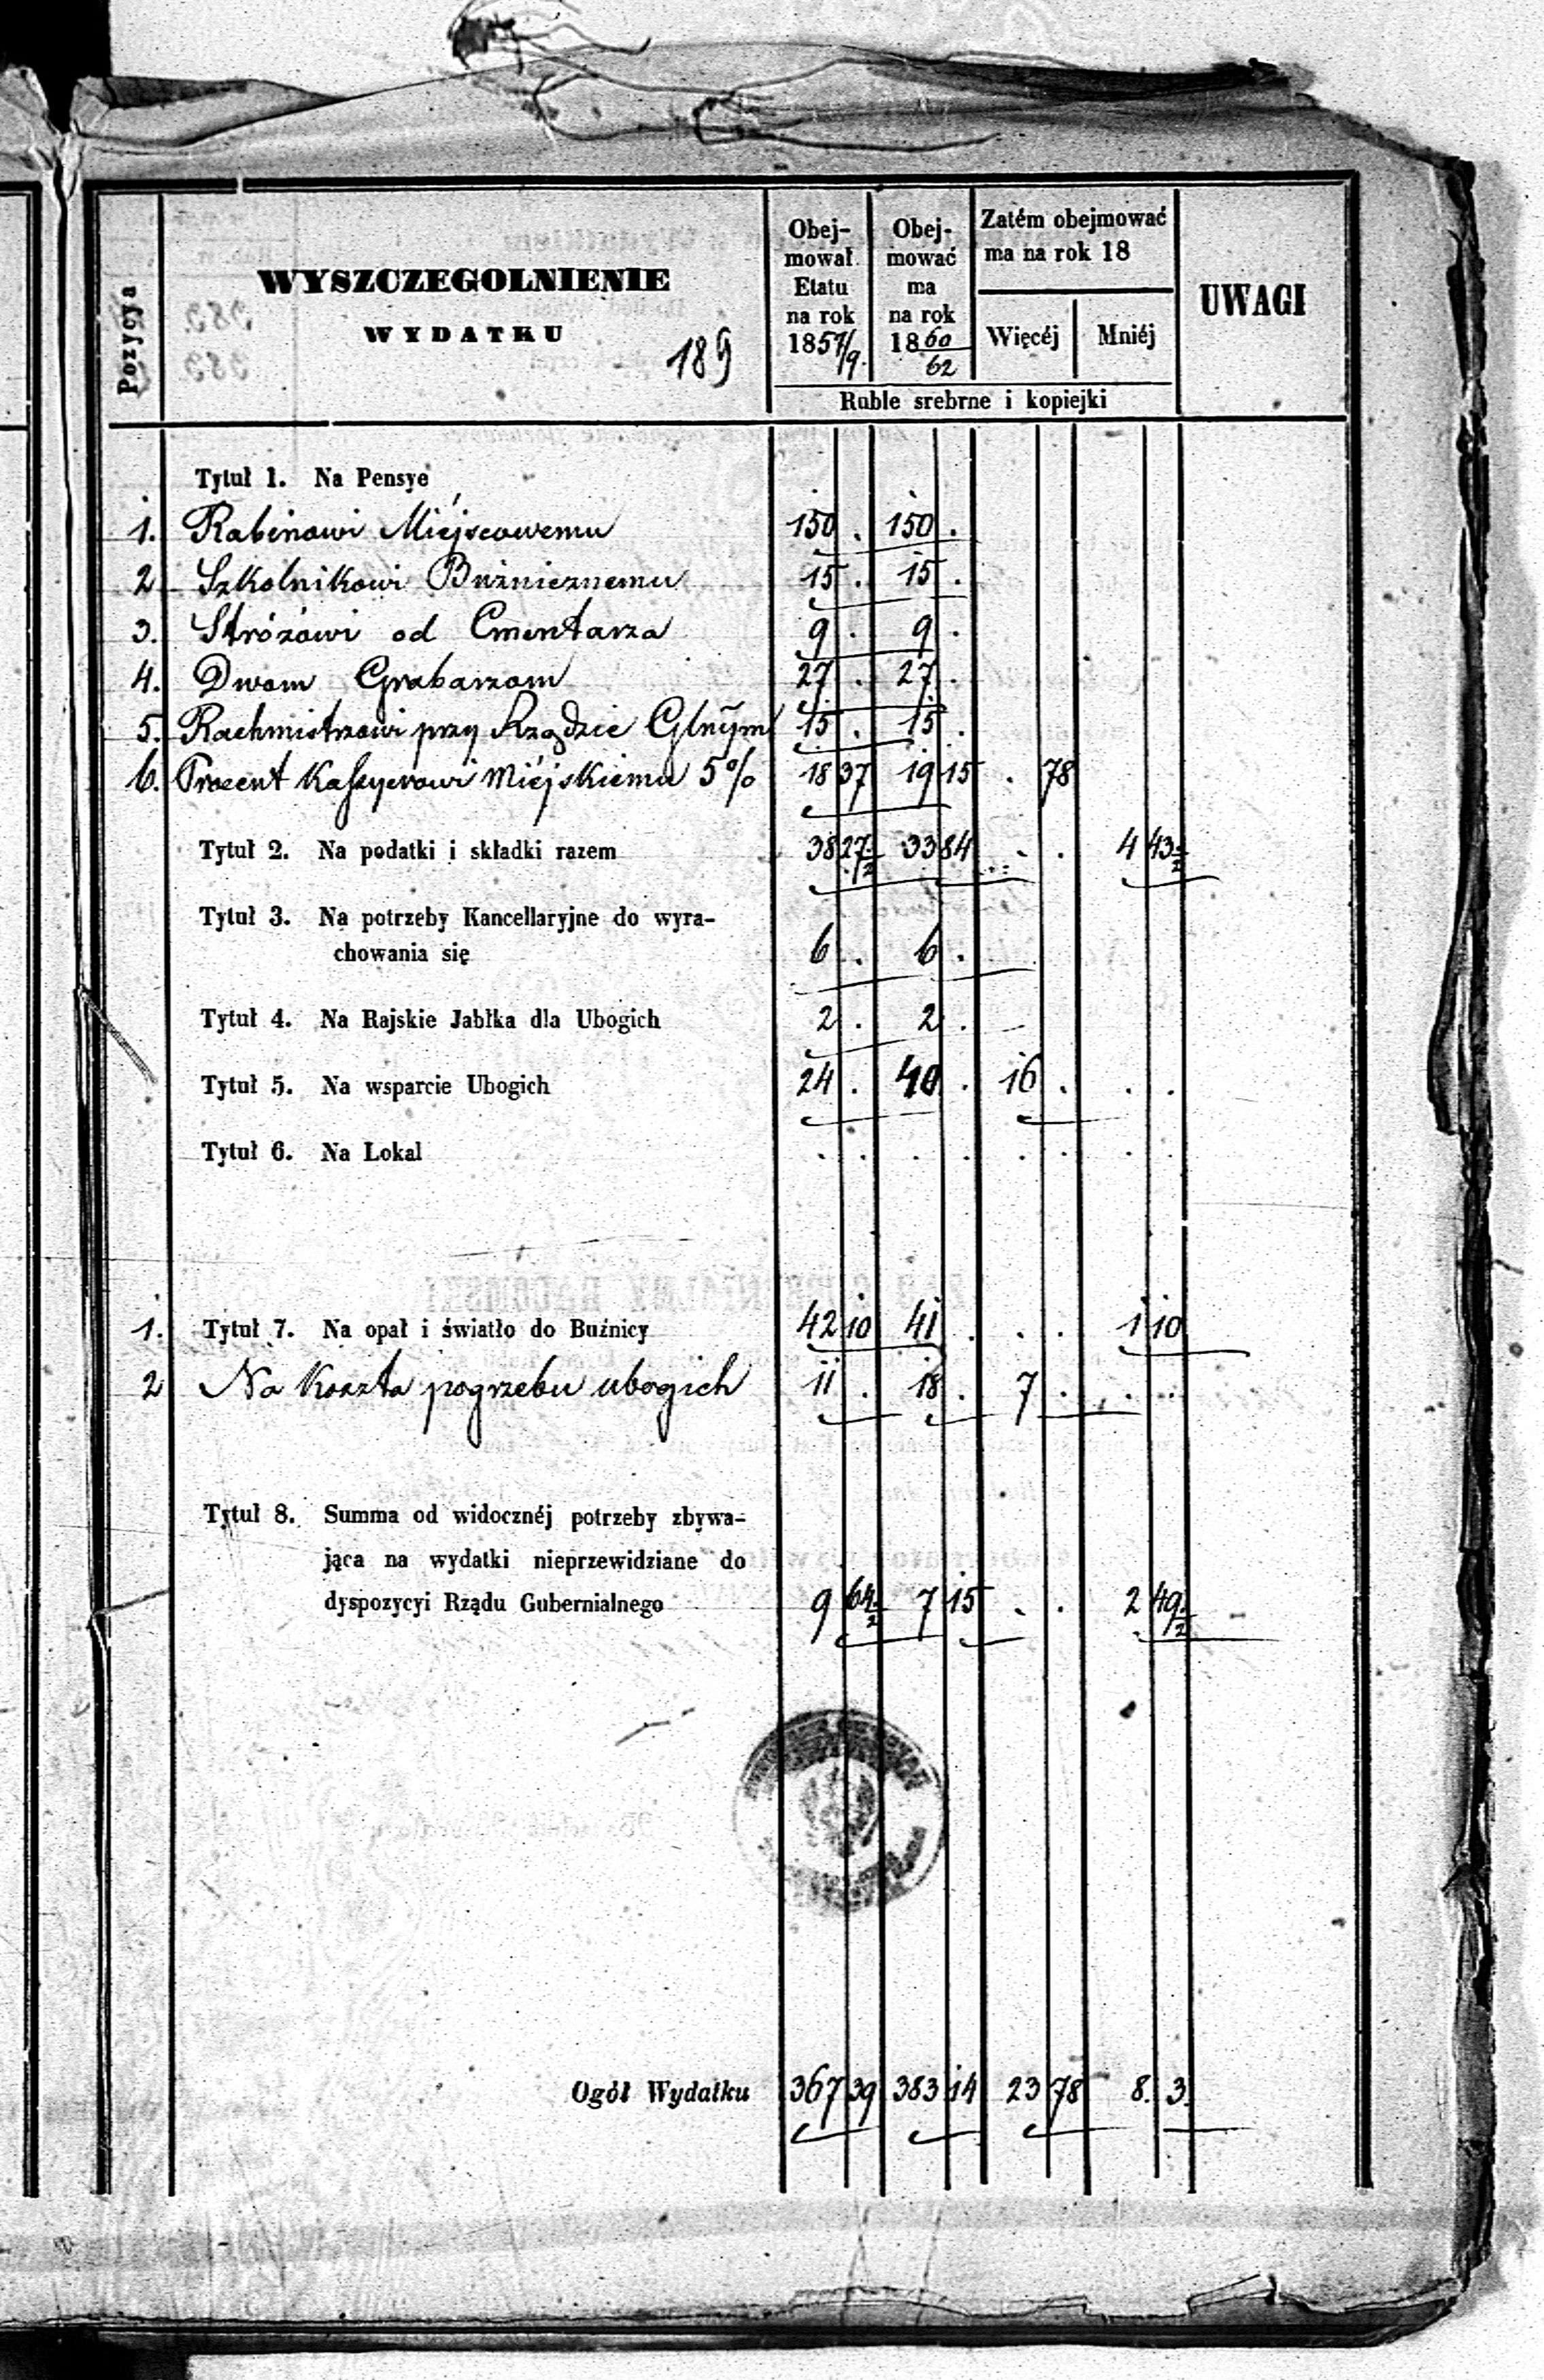 Pozycya
WYSZCZEGOLNIENIE
WYDATKU
189
Obej-
mował
Etatu
na rok
1857/9.
Obej-
mować
ma
na rok
1860/62
Zatém obejmować
ma na rok 18
Więcéj Mniéj
UWAGI
Ruble srebrne i kopiejki
Tytuł 1. Na Pensye
1. Rabinowi Miéjscowemu 150 . 150 .
2 Szkolnikowi Bużnicznemu 15 . 15 .
3. Stróżowi od Cmentarza 9 . 9 .
4. Dwom Grabarzom 27 . 27 .
5. Rachmistrzowi przy Rządzie Glnym 15 . 15 .
6. Procent Kassyerowi Miéjskiemu 5% 18 37 19 15 . 78
Tytuł 2. Na podatki i składki razem 38 27½ 33 84 . . 4 43½
Tytuł 3. Na potrzeby Kancellaryjne do wyra-
chowania się 6 . 6 .
Tytuł 4. Na Rajskie Jabłka dla Ubogich 2 . 2 .
Tytuł 5. Na wsparcie Ubogich 24 . 40 . 16 . . .
Tytuł 6. Na Lokal . . . . . . . .
1. Tytuł 7. Na opał i światło do Buźnicy 42 10 41 . . . 1 10
2 Na Koszta pogrzebu ubogich 11 . 18 . 7 . . .
Tytuł 8. Summa od widocznéj potrzeby zbywa-
jąca na wydatki nieprzewidziane do
dyspozycyi Rządu Gubernialnego 9 64½ 7 15 . . 2 49½
Ogół Wydatku 367 39 383 14 23 78 8. 3.